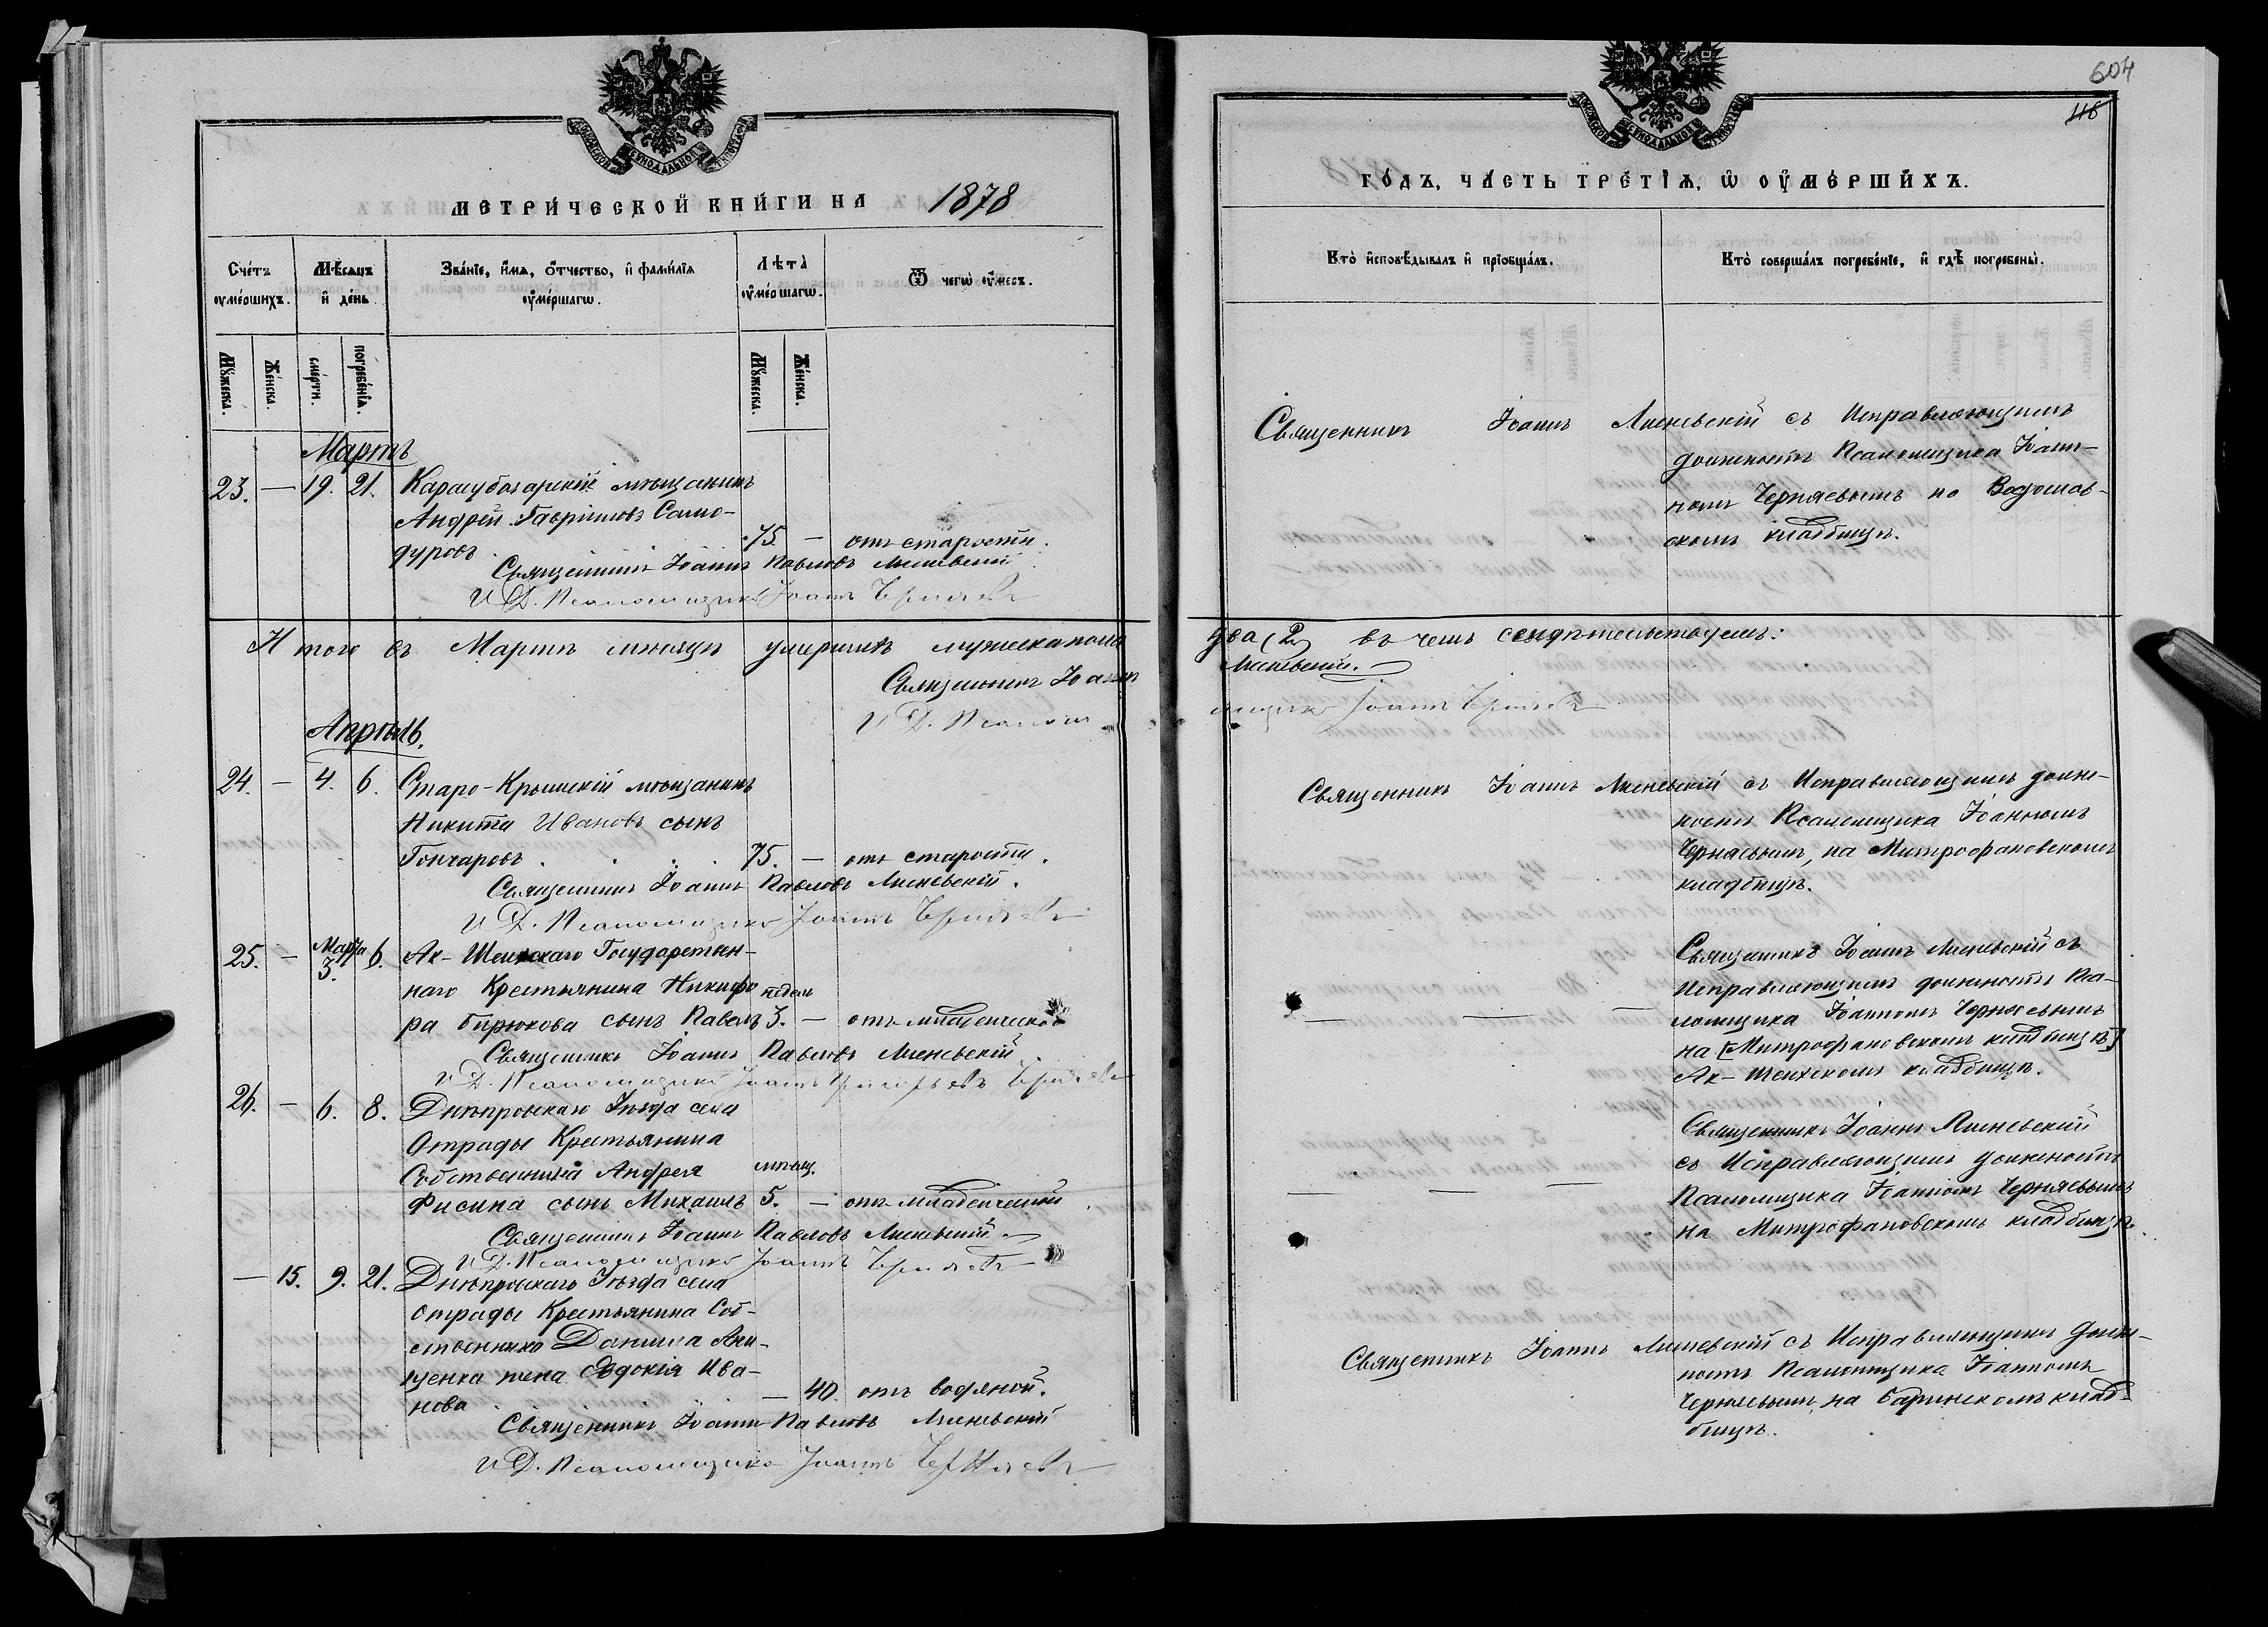 МЕТРИЧЕСКОЙ КНИГИ НА 1878
Счетъ умершихъ.
Мѣсяцъ и день
Званіе, имя, отчество, и фамилія умершаго.
Лѣта умершаго.
Ѿ чегѡ умеръ.
Мужеска.
Женска.
смерти.
погребенія.
Мужеска.
Женска.
Мартъ
23. — 19. 21. Карасубазарскій мѣщанинъ
Андрей Гавріиловъ Само-
дуровъ. 75. — отъ старости.
Священникъ Іоаннъ Павловъ Лисневскій
И Д. Псаломщика Іоаннъ Черняевъ
Итого въ Мартѣ мѣсяцѣ умершихъ мужеска пола
Священникъ Іоаннъ
И Д. Псалом
Апрѣль.
24. — 4. 6. Старо-Крымскій мѣщанинъ
Никита Ивановъ сынъ
Гончаровъ . . . . 75. — отъ старости.
Священникъ Іоаннъ Павловъ Лисневскій.
И Д. Псаломщика Іоаннъ Черняевъ
25. — Марта 3. 6. Ак-Шеихскаго Государствен-
наго Крестьянина Никифо
ра Бирюкова сынъ Павелъ недѣл 3. — отъ младенческой
Священникъ Іоаннъ Павловъ Лисневскій.
И Д. Псаломщика Іоаннъ Григорьевъ Черняевъ
26. — 6. 8. Днѣпровскаго Уѣзда села
Отрады Крестьянина
Собственника Андрея мѣсяц.
Фисина сынъ Михаилъ 5. — отъ младенческой
Священникъ Іоаннъ Павловъ Лисневскій
И Д. Псаломщика Іоаннъ Черняевъ
— 15. 9. 21. Днѣпровскаго Уѣзда села
Отрады Крестьянина Соб-
ственника Данила Ани-
щенка жена Евдокія Ива-
нова . — 40. отъ водяной.
Священникъ Іоаннъ Павловъ Лисневскій
И Д. Псаломщика Іоаннъ Черняевъ
604
116
ГОДЪ, ЧАСТЬ ТРЕТІЯ, Ѡ ОУМЕРШИХЪ.
Кто исповѣдывалъ и пріобщалъ.
Кто совершалъ погребеніе, и гдѣ погребены.
Священникъ Іоаннъ Лисневскій съ Исправляющимъ
должность Псаломщика Іоан-
номъ Черняевымъ на
скомъ кладбищѣ.
два (2) въ чемъ свидѣтельствуемъ:
Лисневскій.
щика Іоаннъ Черняевъ
Священникъ Іоаннъ Лисневскій съ Исправляющимъ долж-
ность Псаломщика Іоанномъ
Черняевымъ, на Митрофановскомъ
кладбищѣ.
Священникъ Іоаннъ Лисневскій съ
Исправляющимъ должность Пса-
ломщика Іоанномъ Черняевымъ
на [Митрофановскомъ кладбищѣ]
Ак-Шеихскомъ кладбищѣ.
Священникъ Іоаннъ Лисневскій
съ Исправляющимъ должность
Псаломщика Іоанномъ Черняевымъ
на Митрофановскомъ кладбищѣ.
Священникъ Іоаннъ Лисневскій съ Исправляющимъ долж-
ность Псаломщика Іоанномъ
Черняевымъ, на Баринскомъ клад-
бищѣ.